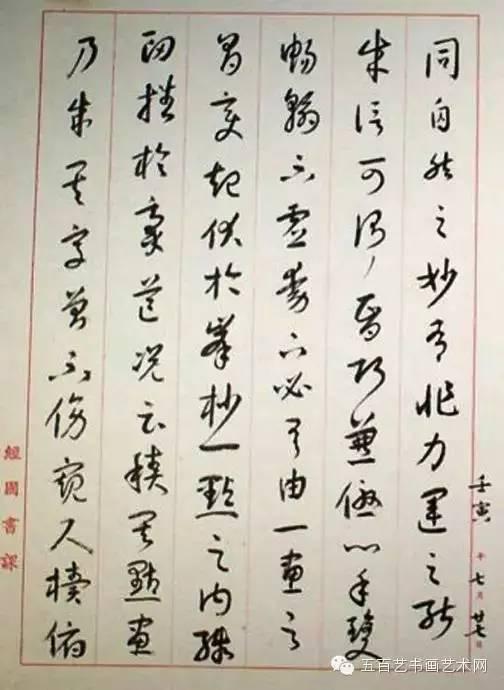 壬寅年七月廿七日
同自然之妙有非力運之能
成信可謂智巧兼優心手雙
暢翰不虛動下必有由一畫之
間變起伏於峯杪一點之內殊
衄挫於豪芒況云積其點畫
乃成其字曾不傍窺尺牘俯
經國書課
五百艺书画艺术网